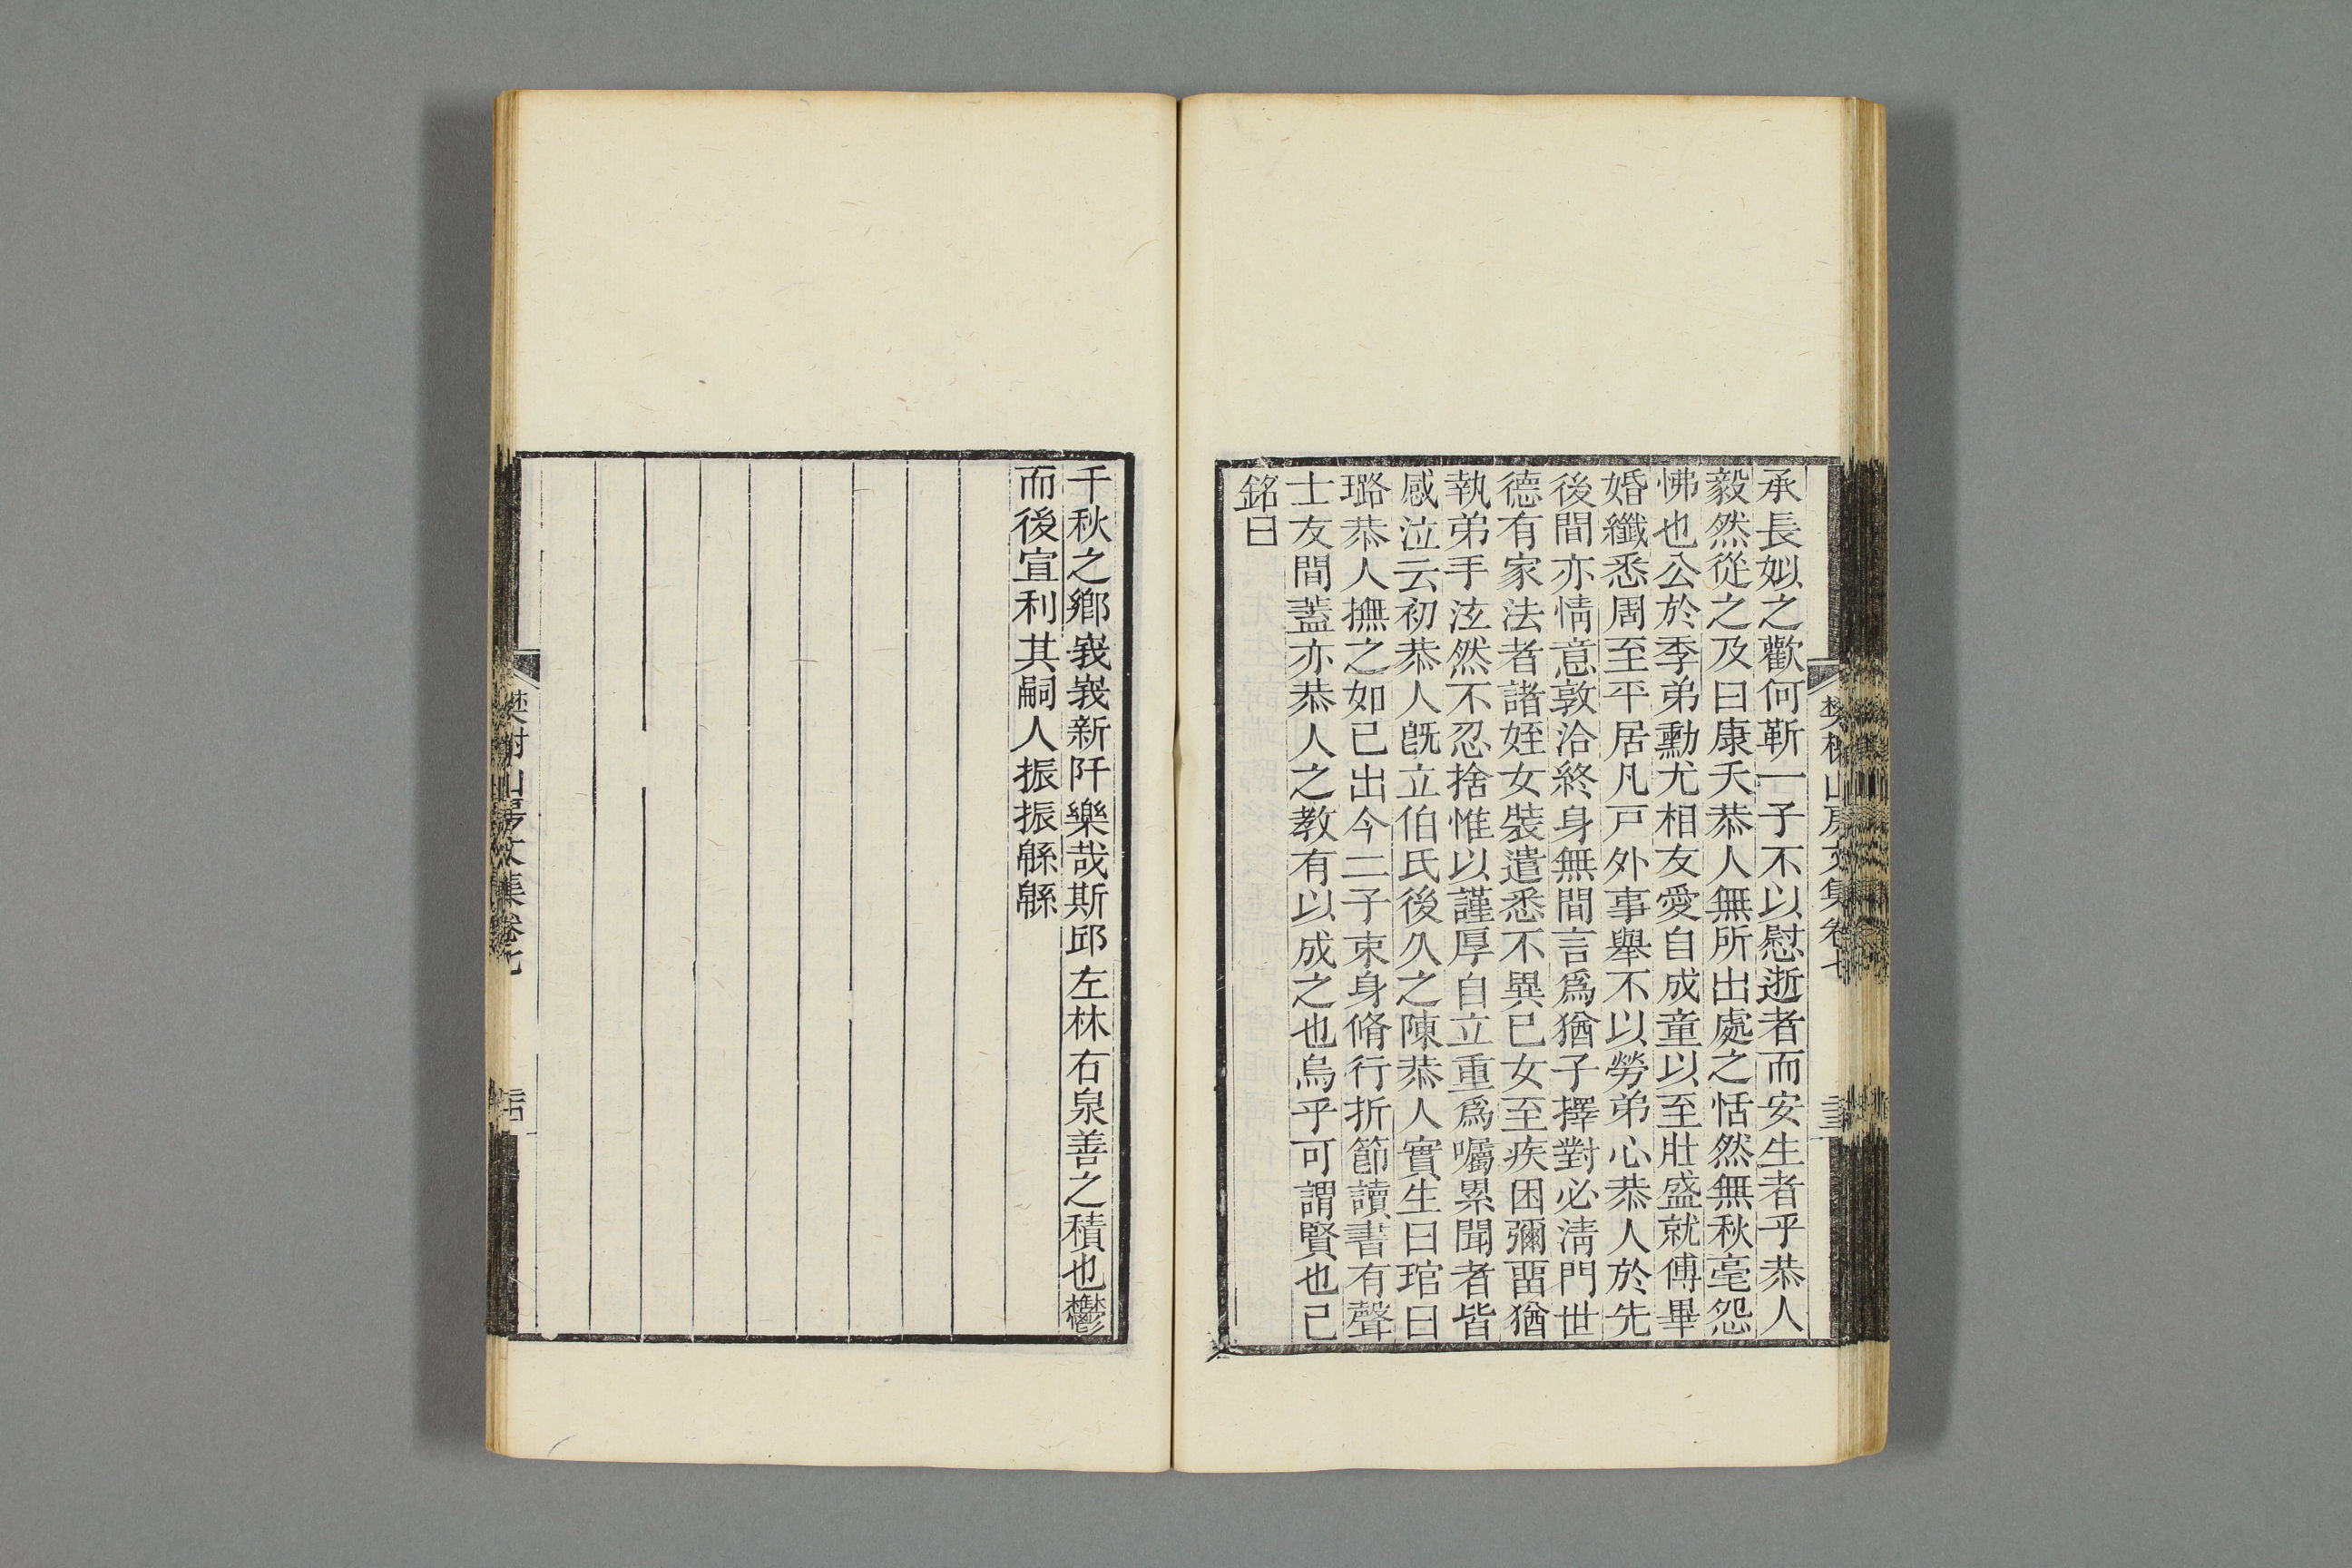 承長姒之歡何靳一子不以慰逝者而安生者乎恭人
毅然從之及曰康夭恭人無所出處之恬然無秋毫怨
怫也公於季弟勳尤相友愛自成童以至壯盛就傅畢
婚纖悉周至平居凡戸外事舉不以勞弟心恭人於先
後間亦情意敦洽終身無間言爲猶子擇對必淸門世
德有家法者諸姪女裝遣悉不異已女至疾困彌畱猶
執弟手泫然不忍捨惟以謹厚自立重爲囑累聞者皆
感泣云初恭人旣立伯氏後久之陳恭人實生曰琯曰
璐恭人撫之如已出今二子束身脩行折節讀書有聲
士友間葢亦恭人之教有以成之也烏乎可謂賢也已
銘曰
千秋之鄉峩峩新阡樂哉斯邱左林右泉善之積也鬱
而後宣利其嗣人振振緜緜
樊榭山房文集卷七